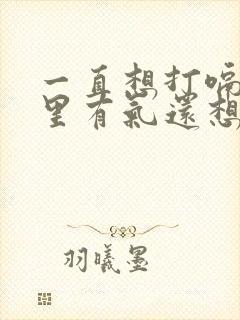 一直想打嗝
里有氣還想
羽曦墨